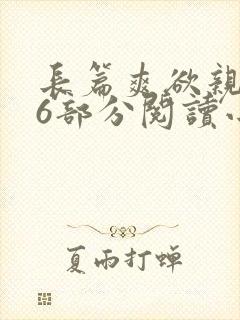 長篇爽欲親
6部分閱讀
夏雨打蝉